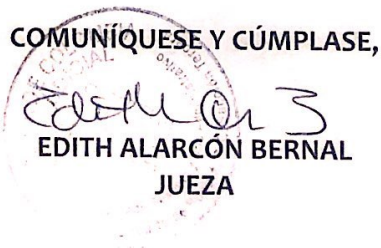 COMUNÍQUESE Y CÚMPLASE,
EDITH ALARCÓN BERNAL
JUEZA